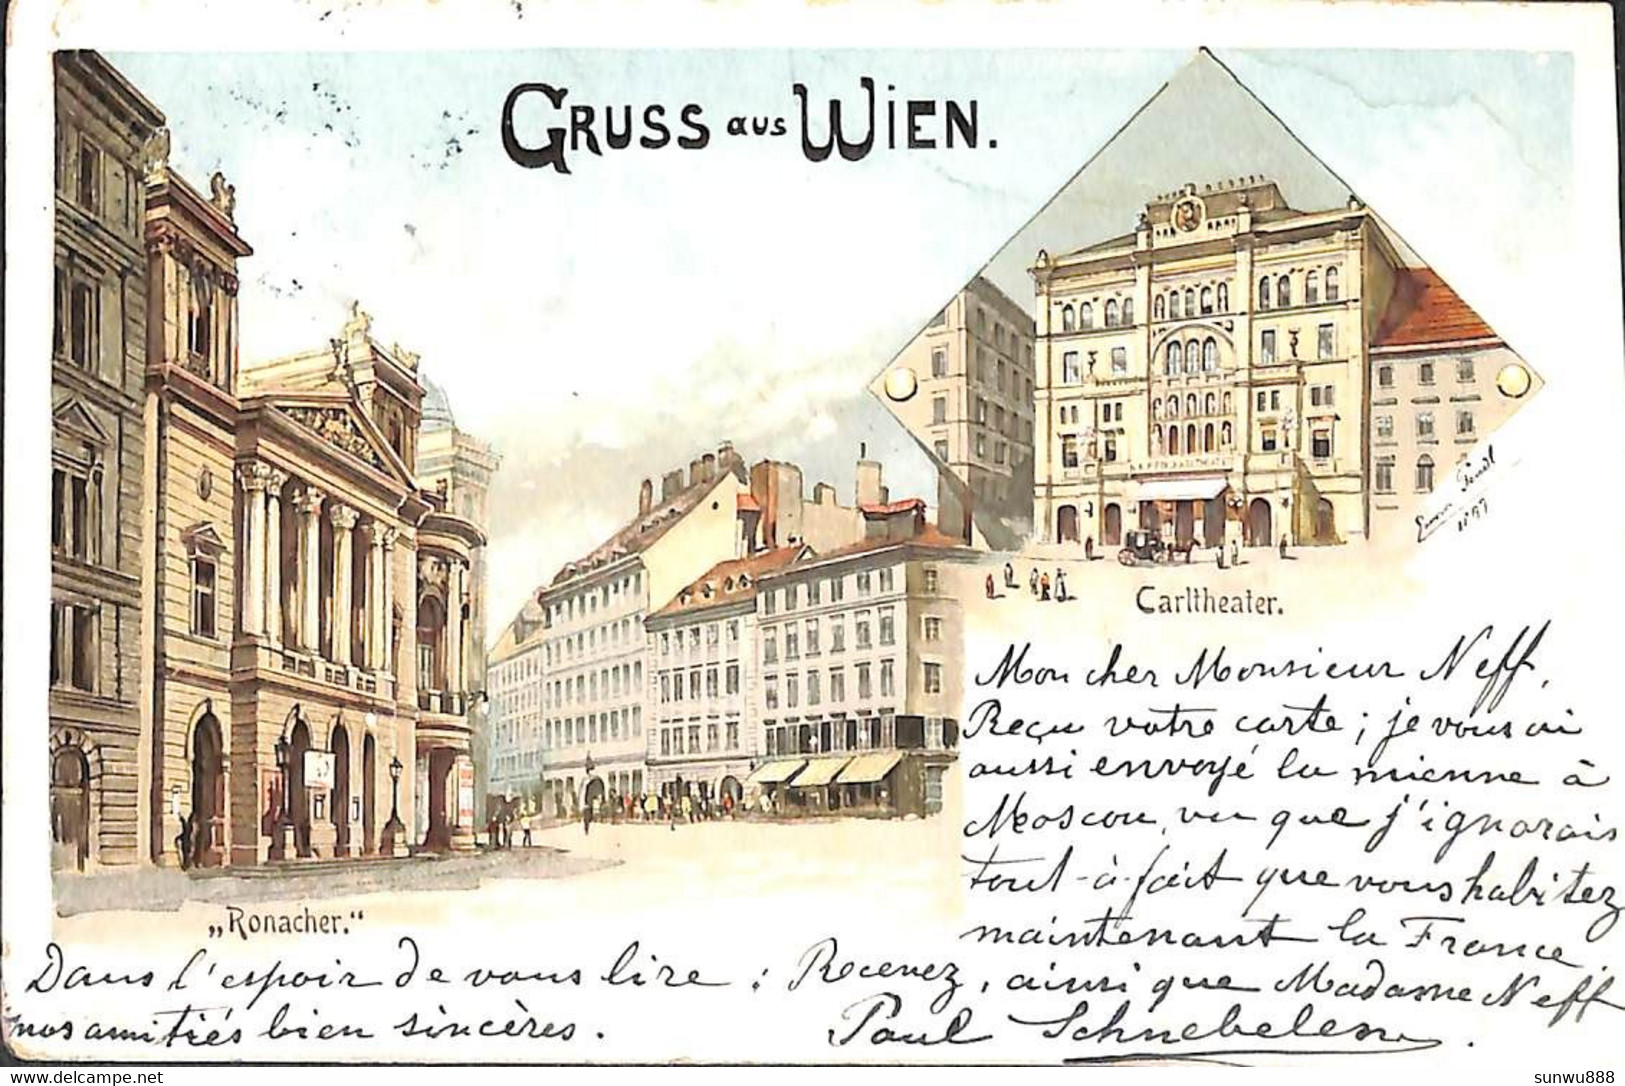 GRUSS aus WIEN.
Carltheater.
„Ronacher.“
Mon cher Monsieur Neff,
Reçu votre carte ; je vous ai
aussi envoyé la mienne à
Moscou, vu que j'ignorais
tout-à-fait que vous habitez
maintenant la France
Dans l'espoir de vous lire ; Recevez, ainsi que Madame Neff
nos amitiés bien sincères. Paul Schnebelen.
delcampe.net
sunwu888